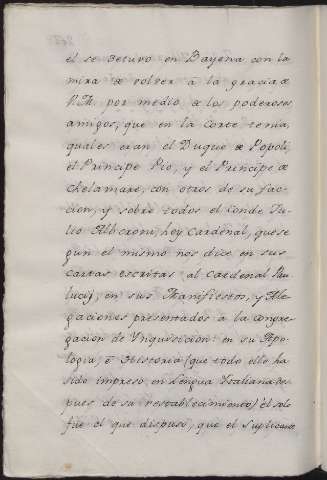 el se detuvo en Bayona con la
mira de volver à la gracia de
V.M. por medio de los poderosos
amigos, que en la Corte tenia,
quales eran el Duque de Popoli,
el Principe Pio, y el Principe de
Chelamare, con otros de su fac-
cion, y sobre todos el Conde Ju-
lio Alberoni, hoy Cardenal, que se
gun el mismo nos dice en sus
cartas escritas al Cardenal Pau
luci, en sus Manifiestos, y Ale
gaciones presentados à la Congre
gacion de Ynquisicion: en su Apo-
logia, è Historia (que todo ello ha
sido impreso en Lengua Ytaliana des
pues de su restablecimiento) èl solo
fue el que dispuso, que el Suplicante